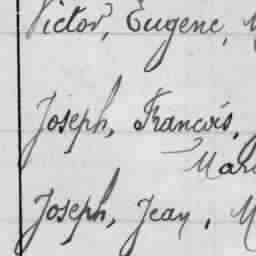 Victor, Eugene,
Joseph, Francois,
Joseph, Jean,